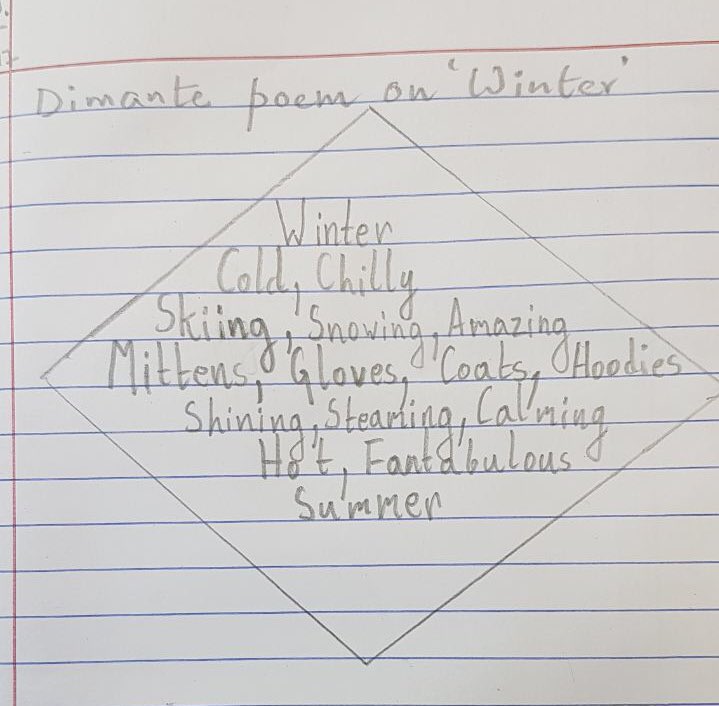 Dimante poem on 'Winter'
Winter
Cold, Chilly
Skiing, Snowing, Amazing
Mittens, Gloves, Coats, Hoodies
Shining, Steaming, Calming
Hot, Fantabulous
Summer